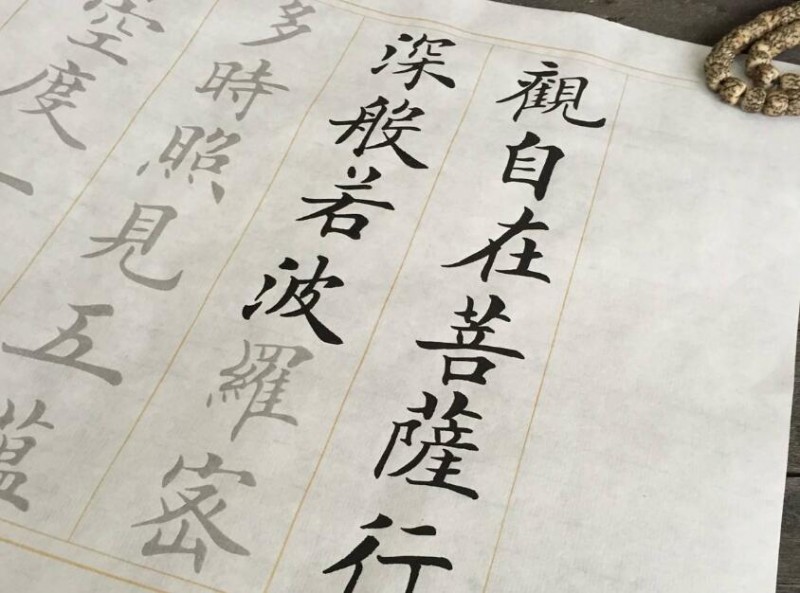 觀自在菩薩行
深般若波羅密
多時照見五蘊
空度一